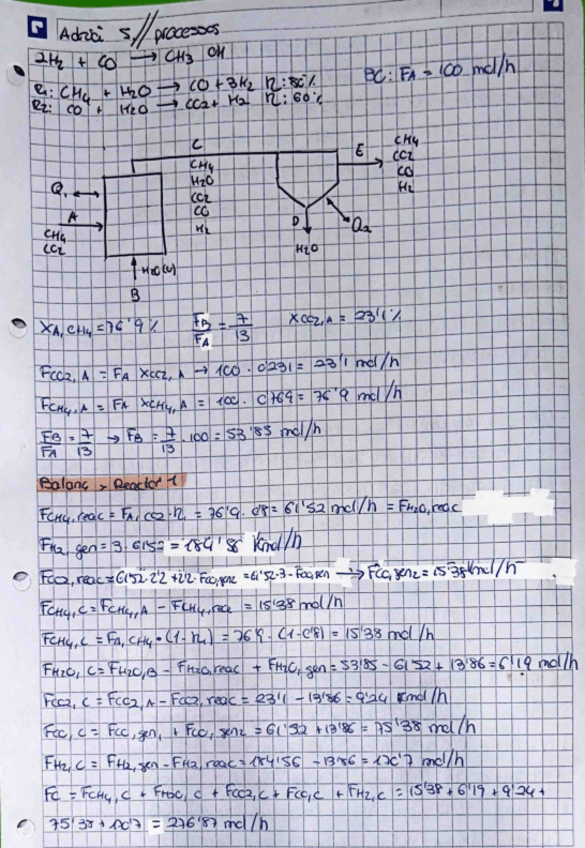 Adrià 5 // processos
2H2 + CO → CH3 OH
BC: FA = 100 mol/h
R1: CH4 + H2O → CO + 3H2 η: 80%
R2: CO + H2O → CO2 + H2 η: 60%
C
E
CH4
CO2
CO
H2
CH4
H2O
CO2
CO
H2
Q1
A
CH4
CO2
D
Q2
H2O
H2O(v)
B
XA, CH4 = 76'9%
FB/FA = 7/13
XCO2, A = 23'1%
FCO2, A = FA XCO2, A → 100 · 0'231 = 23'1 mol/h
FCH4, A = FA XCH4, A = 100 · 0'769 = 76'9 mol/h
FB/FA = 7/13 → FB = 7/13 · 100 = 53'85 mol/h
Balanç > Reactor 1
FCH4, reac = FA, CO2 · η1 = 76'9 · 0'8 = 61'52 mol/h = FH2O, reac
FH2, gen = 3 · 61'52 = 184'56 Kmol/h
FCO2, reac = 61'52 · 2'2 + 2'2 · FCO, gen2 = 61'52 · 3 - FCO, gen → FCO, gen2 = 15'38 Kmol/h
FCH4, C = FCH4, A - FCH4, rea = 15'38 mol/h
FCH4, C = FA, CH4 · (1 - η1) = 76'9 · (1 - 0'8) = 15'38 mol/h
FH2O, C = FH2O, B - FH2O, reac + FH2O, gen = 53'85 - 61'52 + 13'86 = 6'19 mol/h
FCO2, C = FCO2, A - FCO2, reac = 23'1 - 13'86 = 9'24 Kmol/h
FCO, C = FCO, gen1 + FCO, gen2 = 61'52 + 13'86 = 75'38 mol/h
FH2, C = FH2, gen - FH2, reac = 184'56 - 13'86 = 170'7 mol/h
FC = FCH4, C + FH2O, C + FCO2, C + FCO, C + FH2, C = 15'38 + 6'19 + 9'24 +
75'38 + 170'7 = 276'87 mol/h